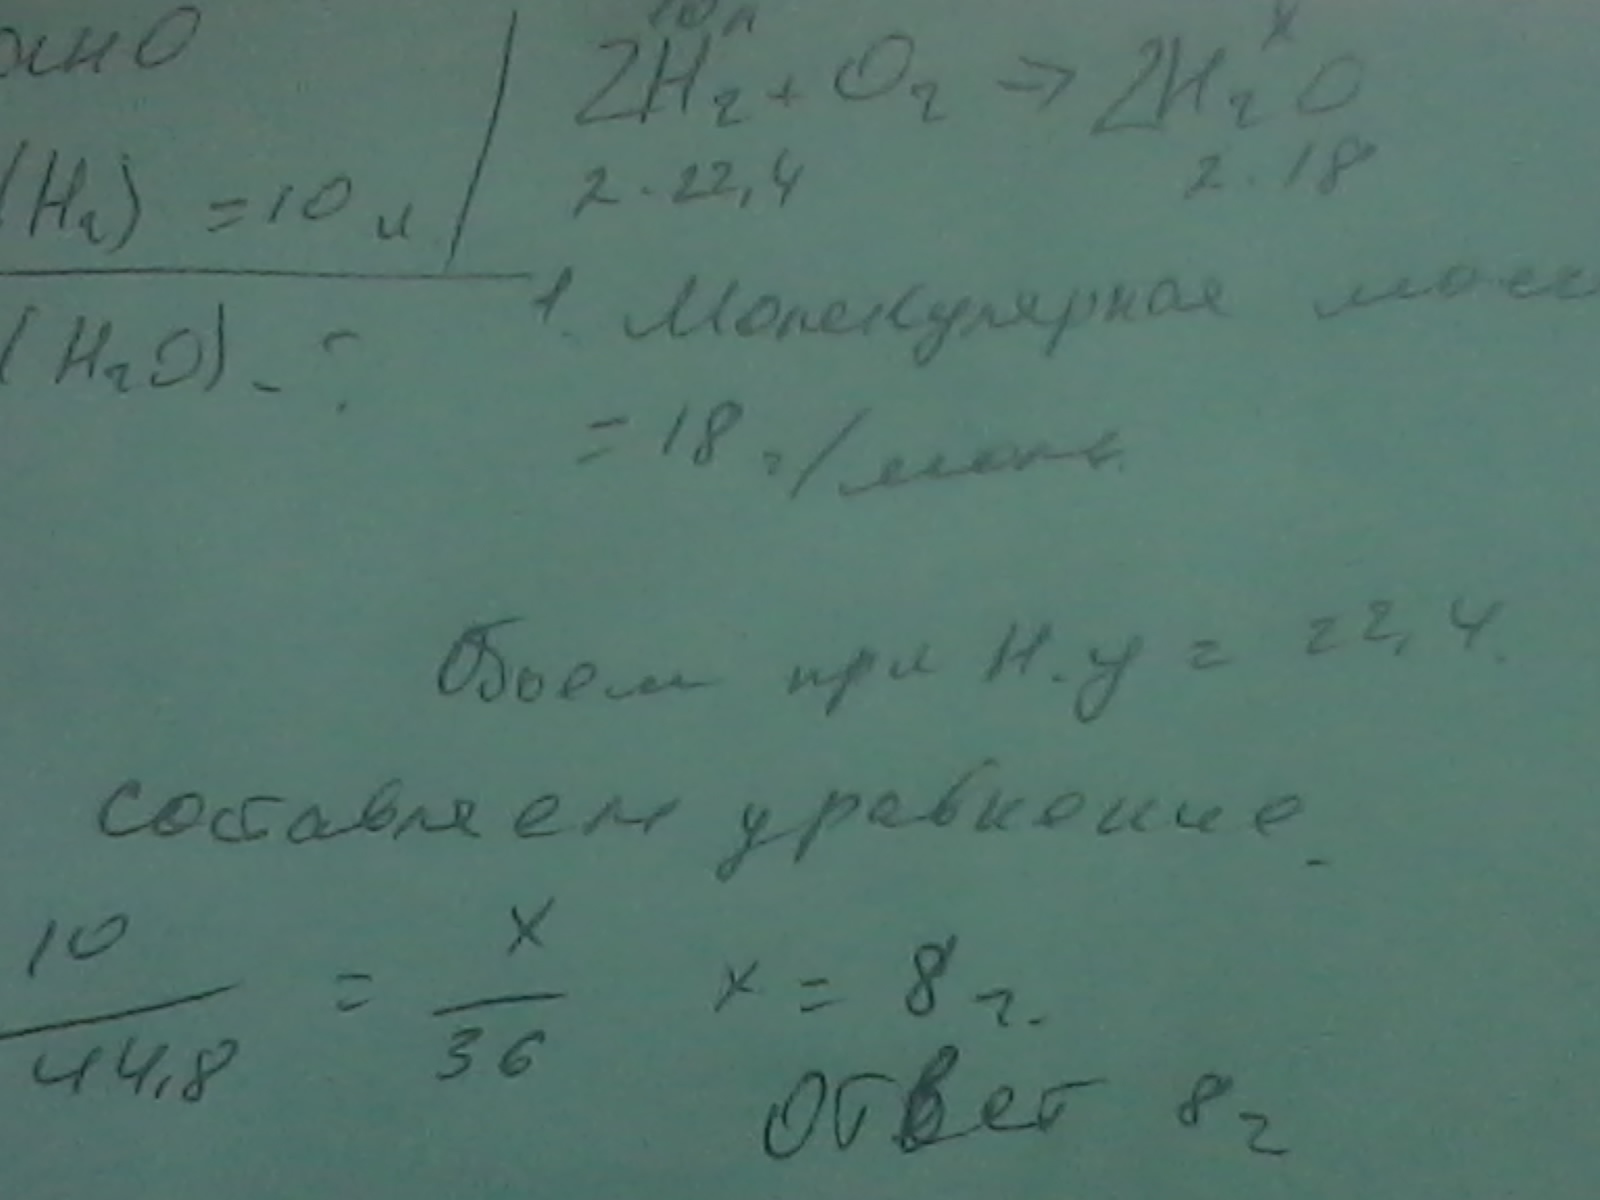 ано
10л x
2H₂ + O₂ → 2H₂O
(H₂) = 10 л
2·22,4 2·18
(H₂O) - ?
1. Молекулярная масс
= 18 г/моль
Объем при Н.у = 22,4.
составляем уравнение.
10/44,8 = x/36 x = 8 г.
Ответ 8 г